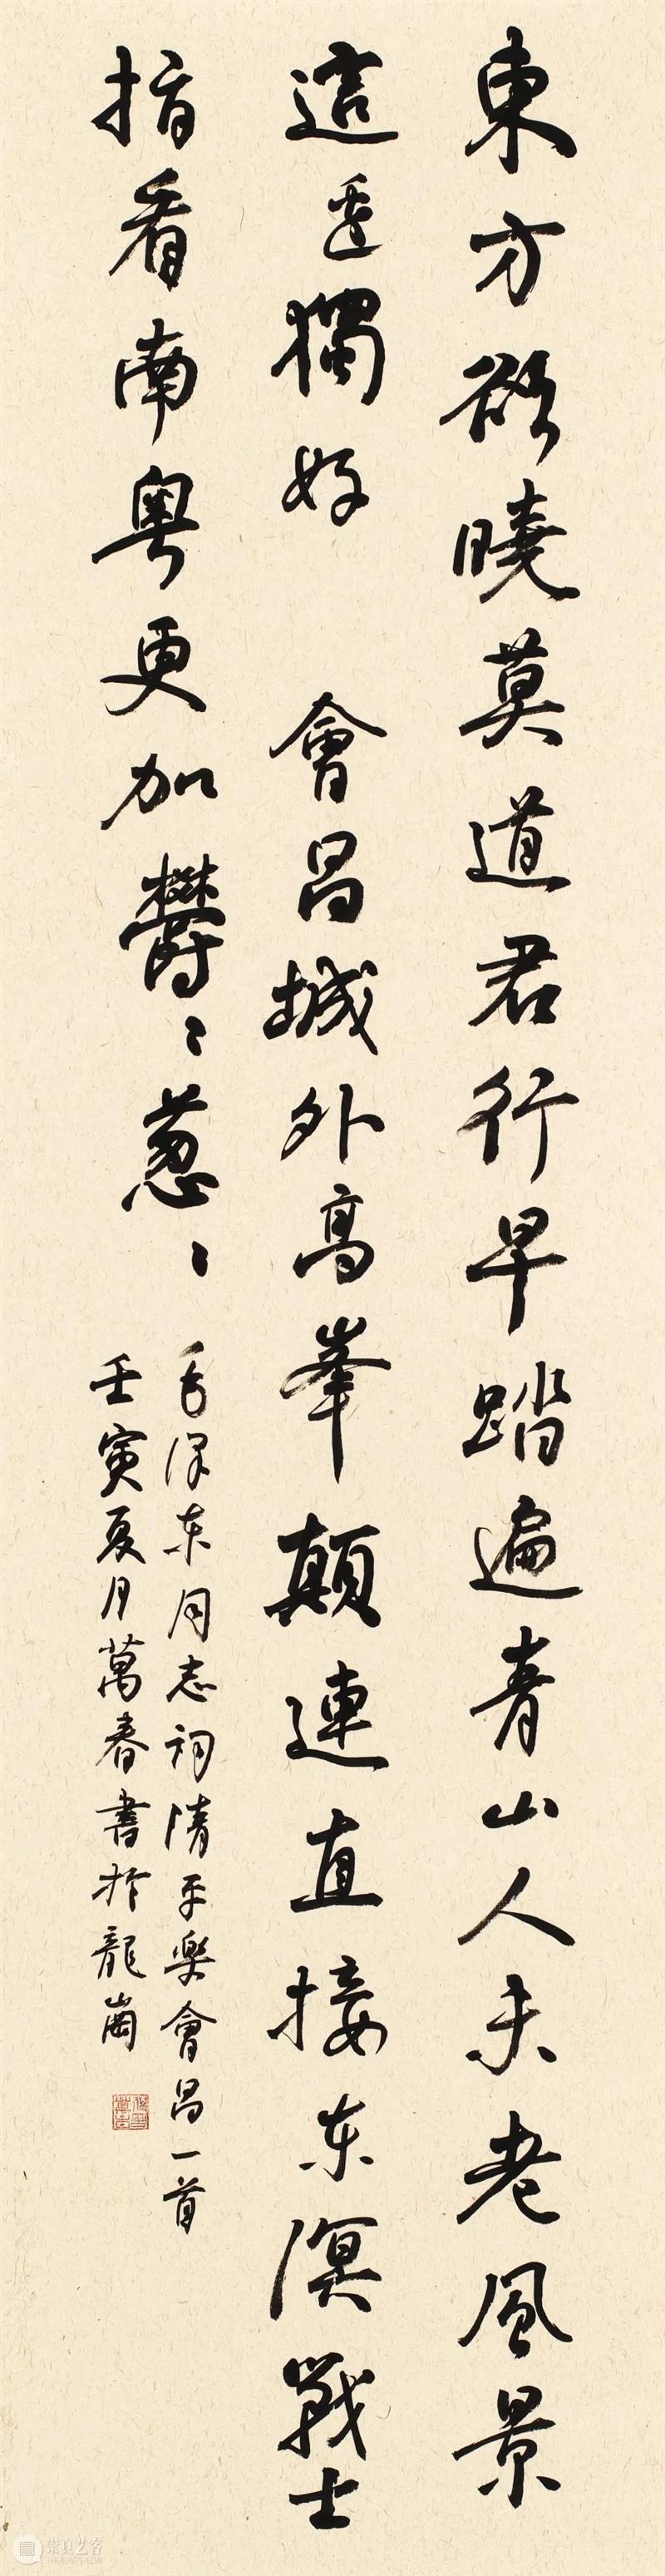 東方欲曉莫道君行早踏遍青山人未老風景
這邊獨好 會昌城外高峯顛連直接东溟戰士
指看南粤更加鬱〻葱〻
毛泽东同志词清平樂會昌一首
壬寅夏月萬春書於龍崗
崇真艺客